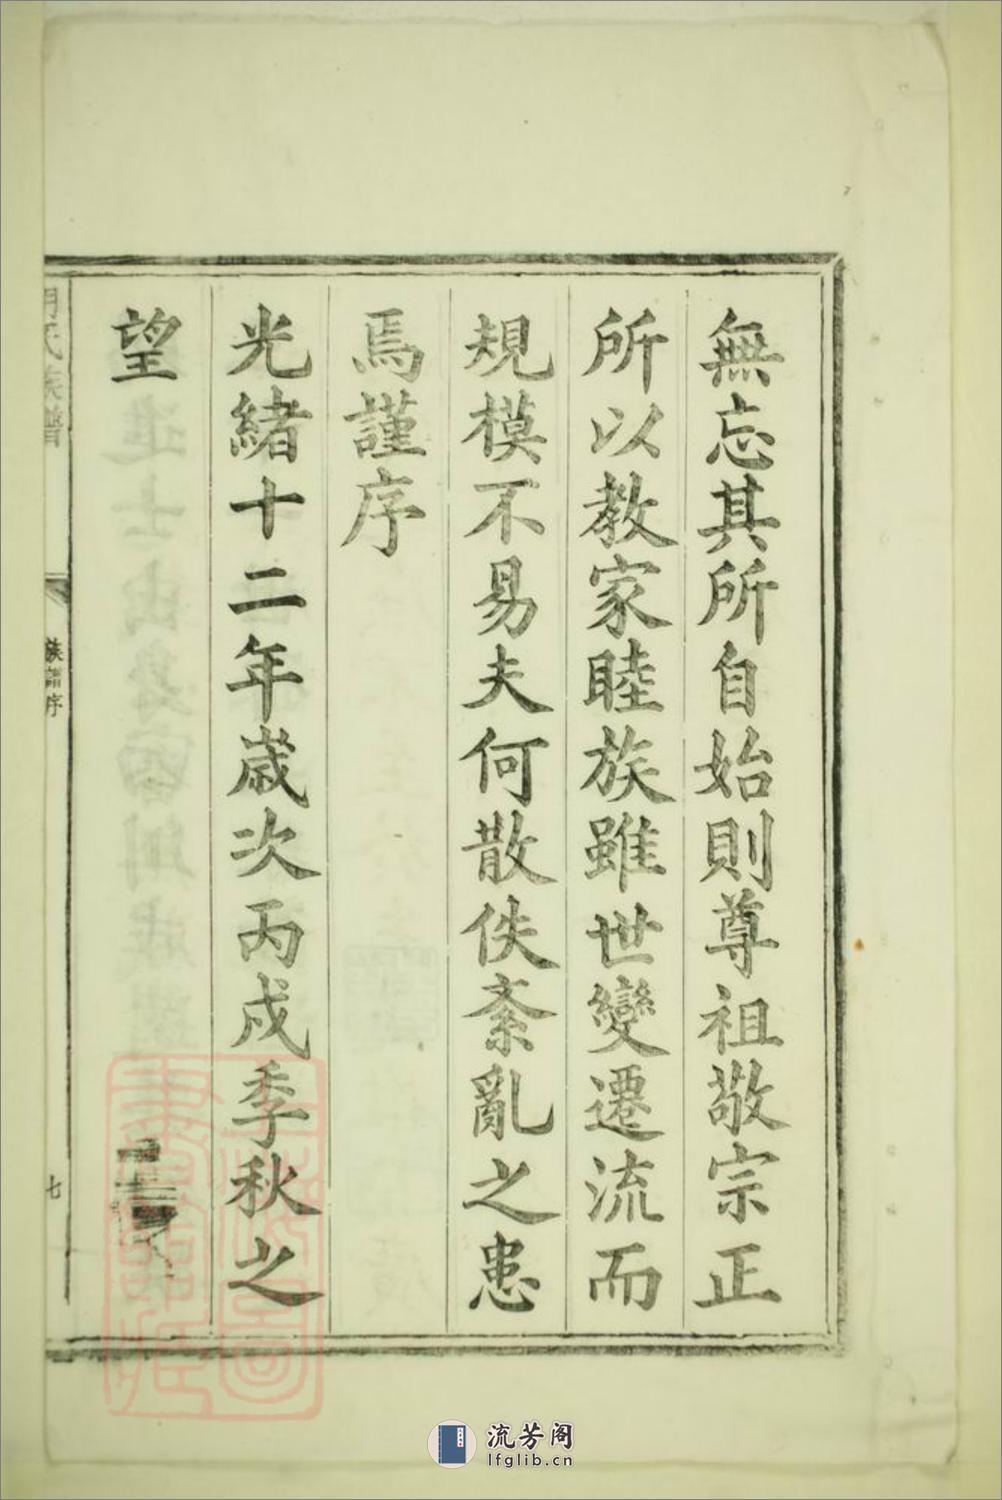 無忘其所自始則尊祖敬宗正
所以教家睦族雖世變遷流而
規模不易夫何散佚紊亂之患
焉謹序
光緒十二年歲次丙戌季秋之
望
氏族譜
族譜序
七
流芳阁
lfglib.cn